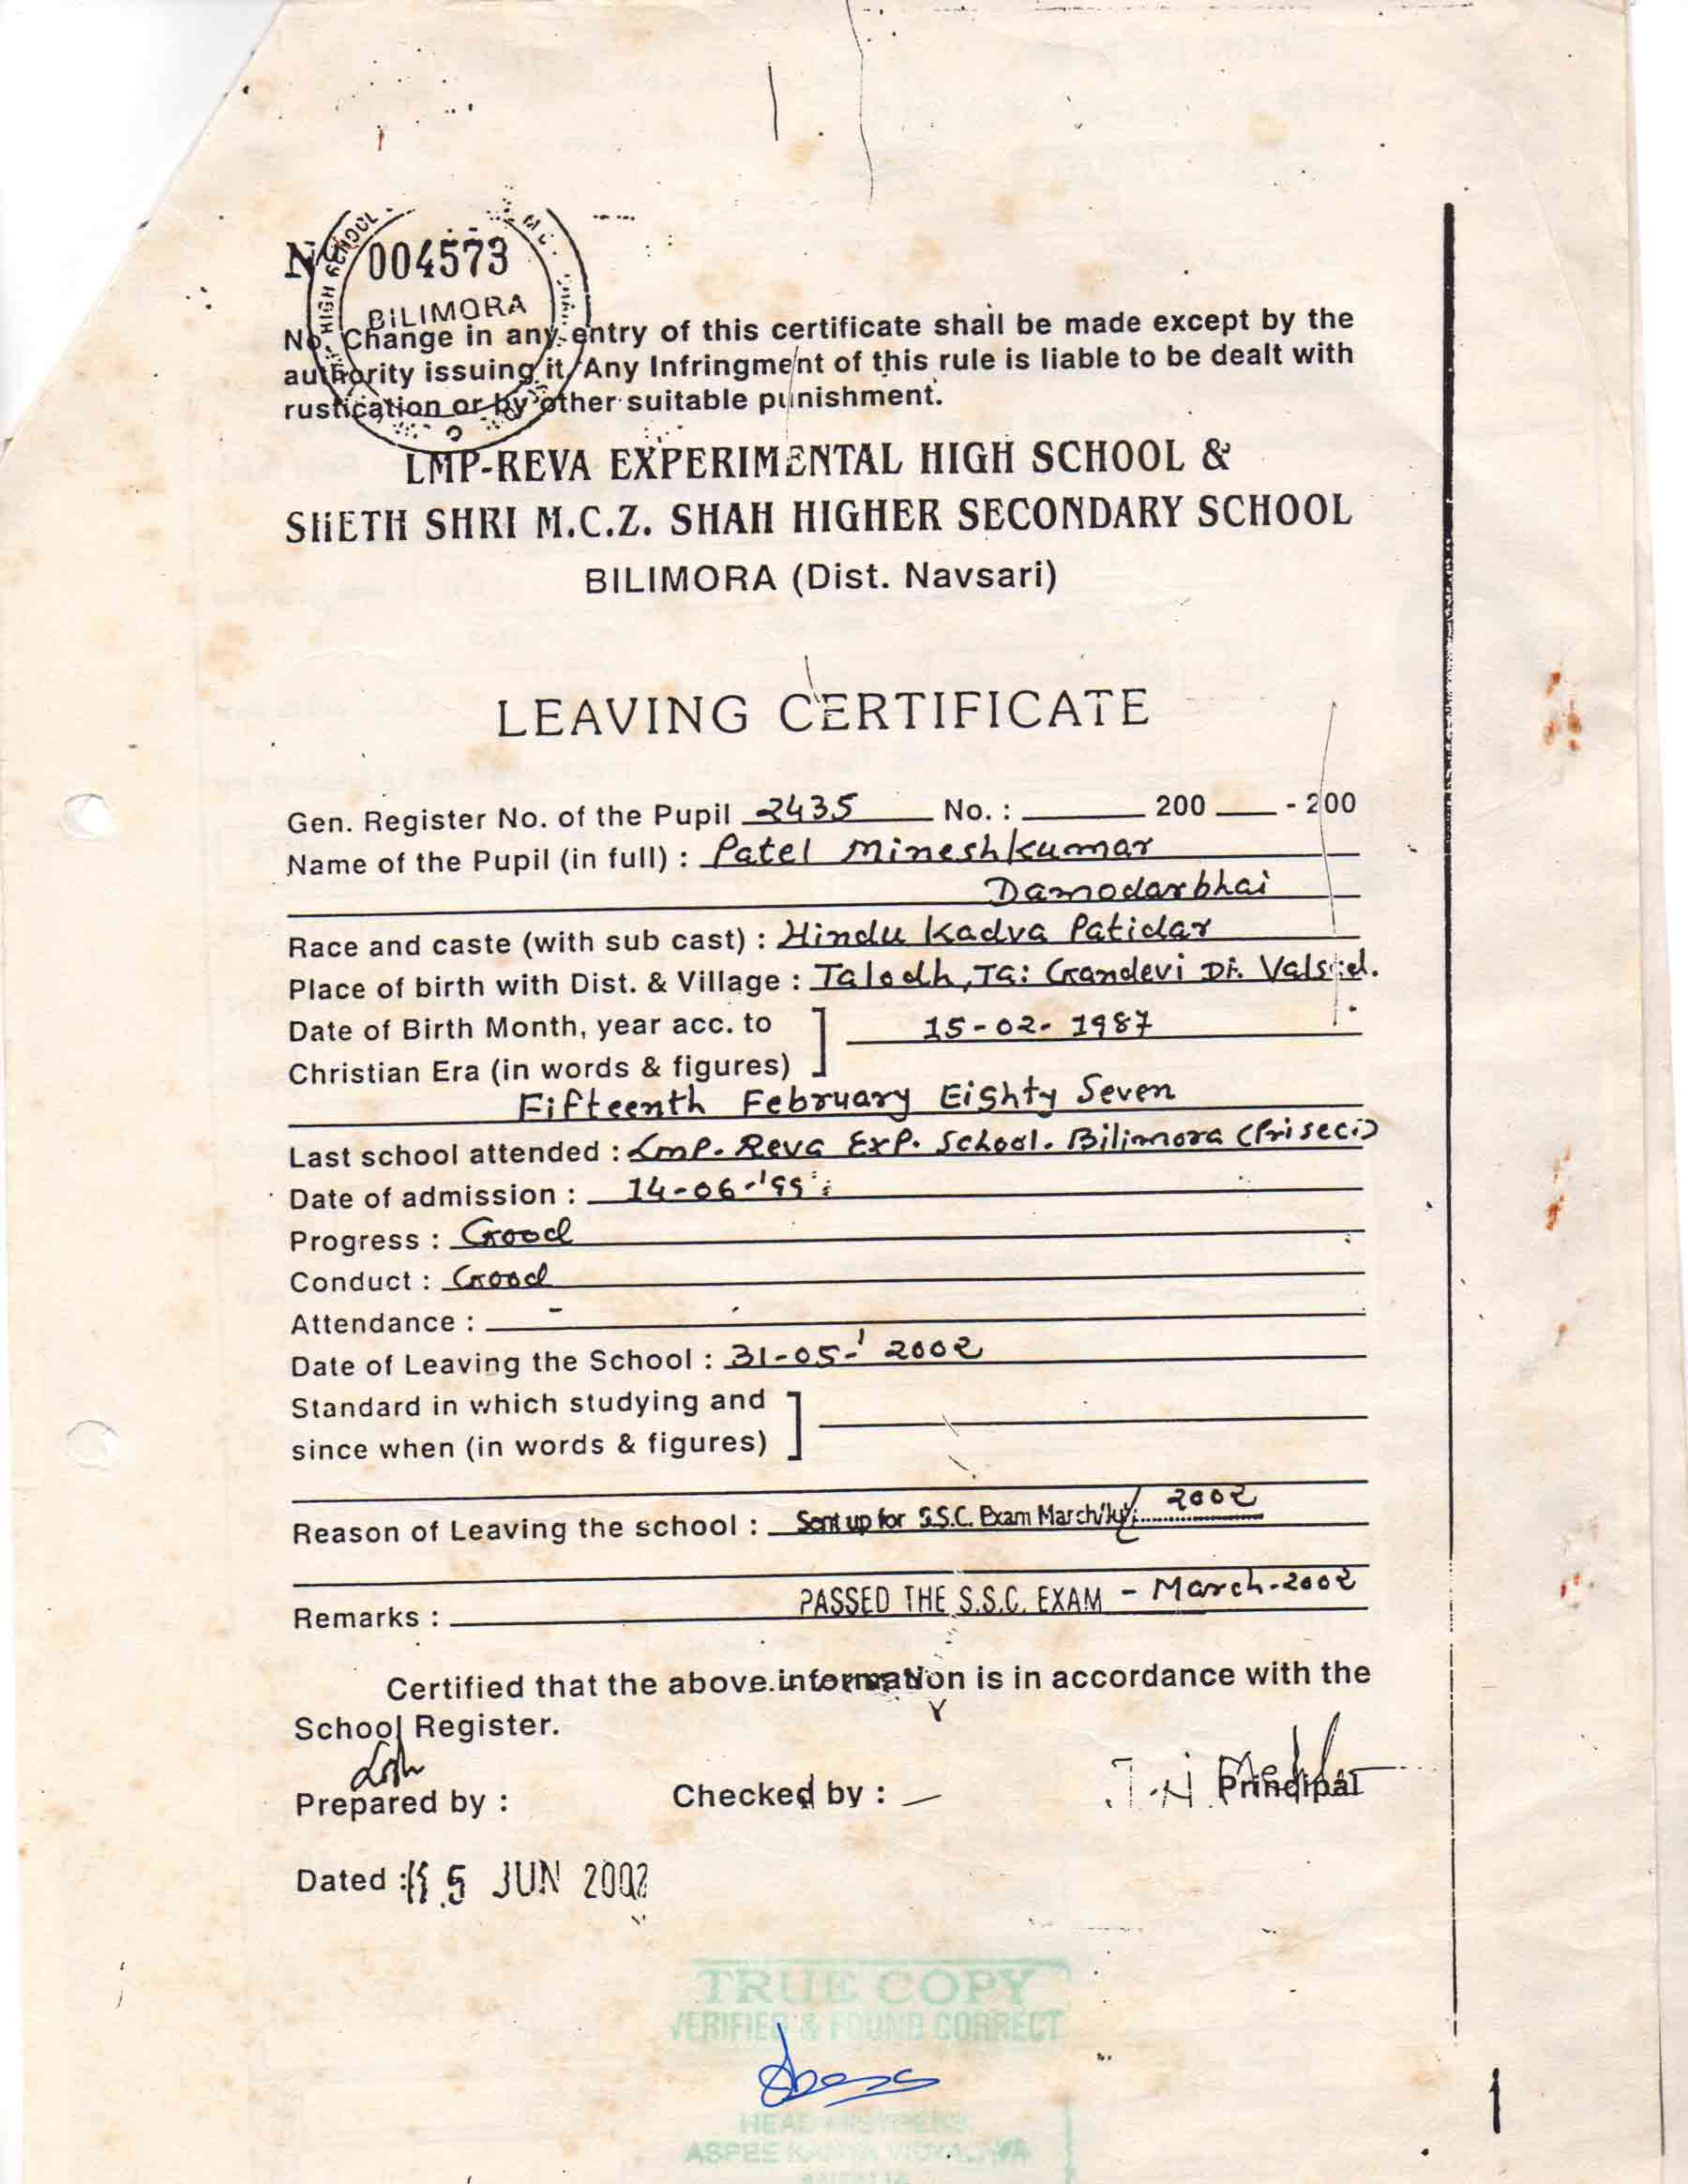 No 004573
HIGH SCHOOL
M.C.
BILIMORA
No. Change in any entry of this certificate shall be made except by the
authority issuing it. Any Infringment of this rule is liable to be dealt with
rustication or by other suitable punishment.
LMP-REVA EXPERIMENTAL HIGH SCHOOL &
SHETH SHRI M.C.Z. SHAH HIGHER SECONDARY SCHOOL
BILIMORA (Dist. Navsari)
LEAVING CERTIFICATE
Gen. Register No. of the Pupil 2435 No. : 200 - 200
Name of the Pupil (in full) : Patel Mineshkumar
Damodarbhai
Race and caste (with sub cast) : Hindu Kadva Patidar
Place of birth with Dist. & Village : Talodh, Ta: Gandevi Di. Valsad.
Date of Birth Month, year acc. to
15-02-1987
Christian Era (in words & figures)
Fifteenth February Eighty Seven
Last school attended : Lmp. Reva Exp. School. Bilimora (Pri sec)
Date of admission : 14-06-'99
Progress : Good
Conduct : Good
Attendance : -
Date of Leaving the School : 31-05-' 2002
Standard in which studying and
since when (in words & figures)
Reason of Leaving the school : Sent up for S.S.C. Exam March/ 2002
Remarks : PASSED THE S.S.C. EXAM - March-2002
Certified that the above information is in accordance with the
School Register.
Prepared by : Checked by : - Principal
Dated : 15 JUN 2002
TRUE COPY
VERIFIED & FOUND CORRECT
HEAD
ASPEE KANYA VIDYALAYA
1